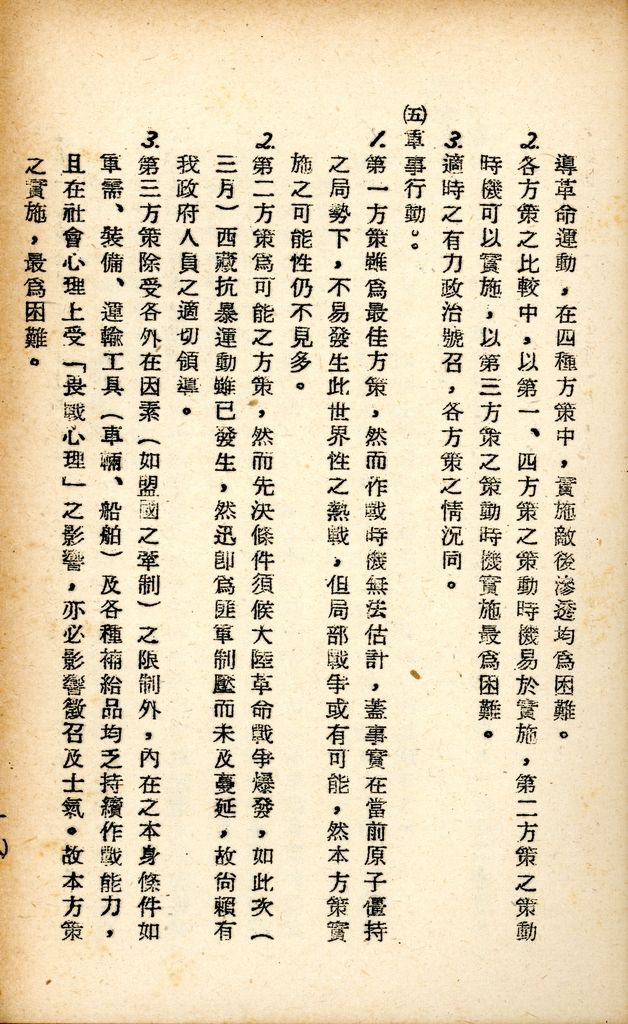 導革命運動，在四種方策中，實施敵後滲透均爲困難。
2.各方策之比較中，以第一、四方策之策動時機易於實施，第二方策之策動
時機可以實施，以第三方策之策動時機實施最爲困難。
3.適時之有力政治號召，各方策之情況同。
㈤軍事行動。。
1.第一方策雖爲最佳方策，然而作戰時機無法估計，蓋事實在當前原子僵持
之局勢下，不易發生此世界性之熱戰，但局部戰爭或有可能，然本方策實
施之可能性仍不見多。
2.第二方策爲可能之方策，然而先決條件須候大陸革命戰爭爆發，如此次（
三月）西藏抗暴運動雖已發生，然迅卽爲匪軍制壓而未及蔓延，故尙賴有
我政府人員之適切領導。
3.第三方策除受各外在因素（如盟國之牽制）之限制外，內在之本身條件如
軍需、裝備、運輸工具（車輛、船舶）及各種補給品均乏持續作戰能力，
且在社會心理上受「畏戰心理」之影響，亦必影響徵召及士氣。故本方策
之實施，最爲困難。